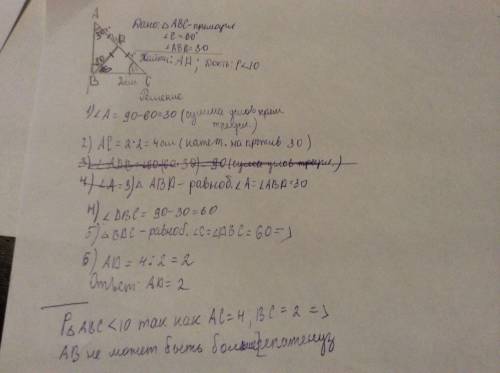 A
30°
D
30
60
60
B
2см
C
Дано: △ABC - прямоуг
∠C = 60°
∠ABD = 30
Найти: AD; Док-ть: P<10
Решение
1) ∠A = 90-60=30 (сумма углов прям. треуг.)
2) AC = 2·2 = 4см (катет. на против 30)
4) ∠A = ⇒ △ ABD - равноб. ∠A = ∠ABD = 30
4) ∠DBC = 90-30=60
5) △BDC - равноб. ∠C = ∠DBC = 60 ⇒
6) AD = 4:2 = 2
Ответ: AD = 2
P△ABC < 10 так как AC = 4, BC = 2 ⇒
AB не может быть больше гипотенуз